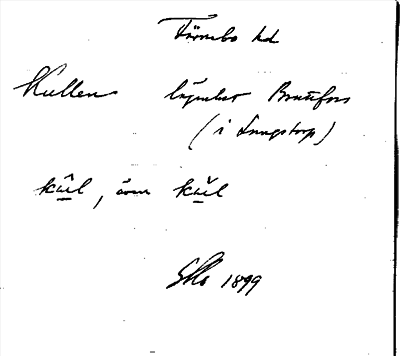 Färnebo hd
Kullen lägenhet Brattfors
(i Lungstorp)
kûl, även kŭl
SHo 1899